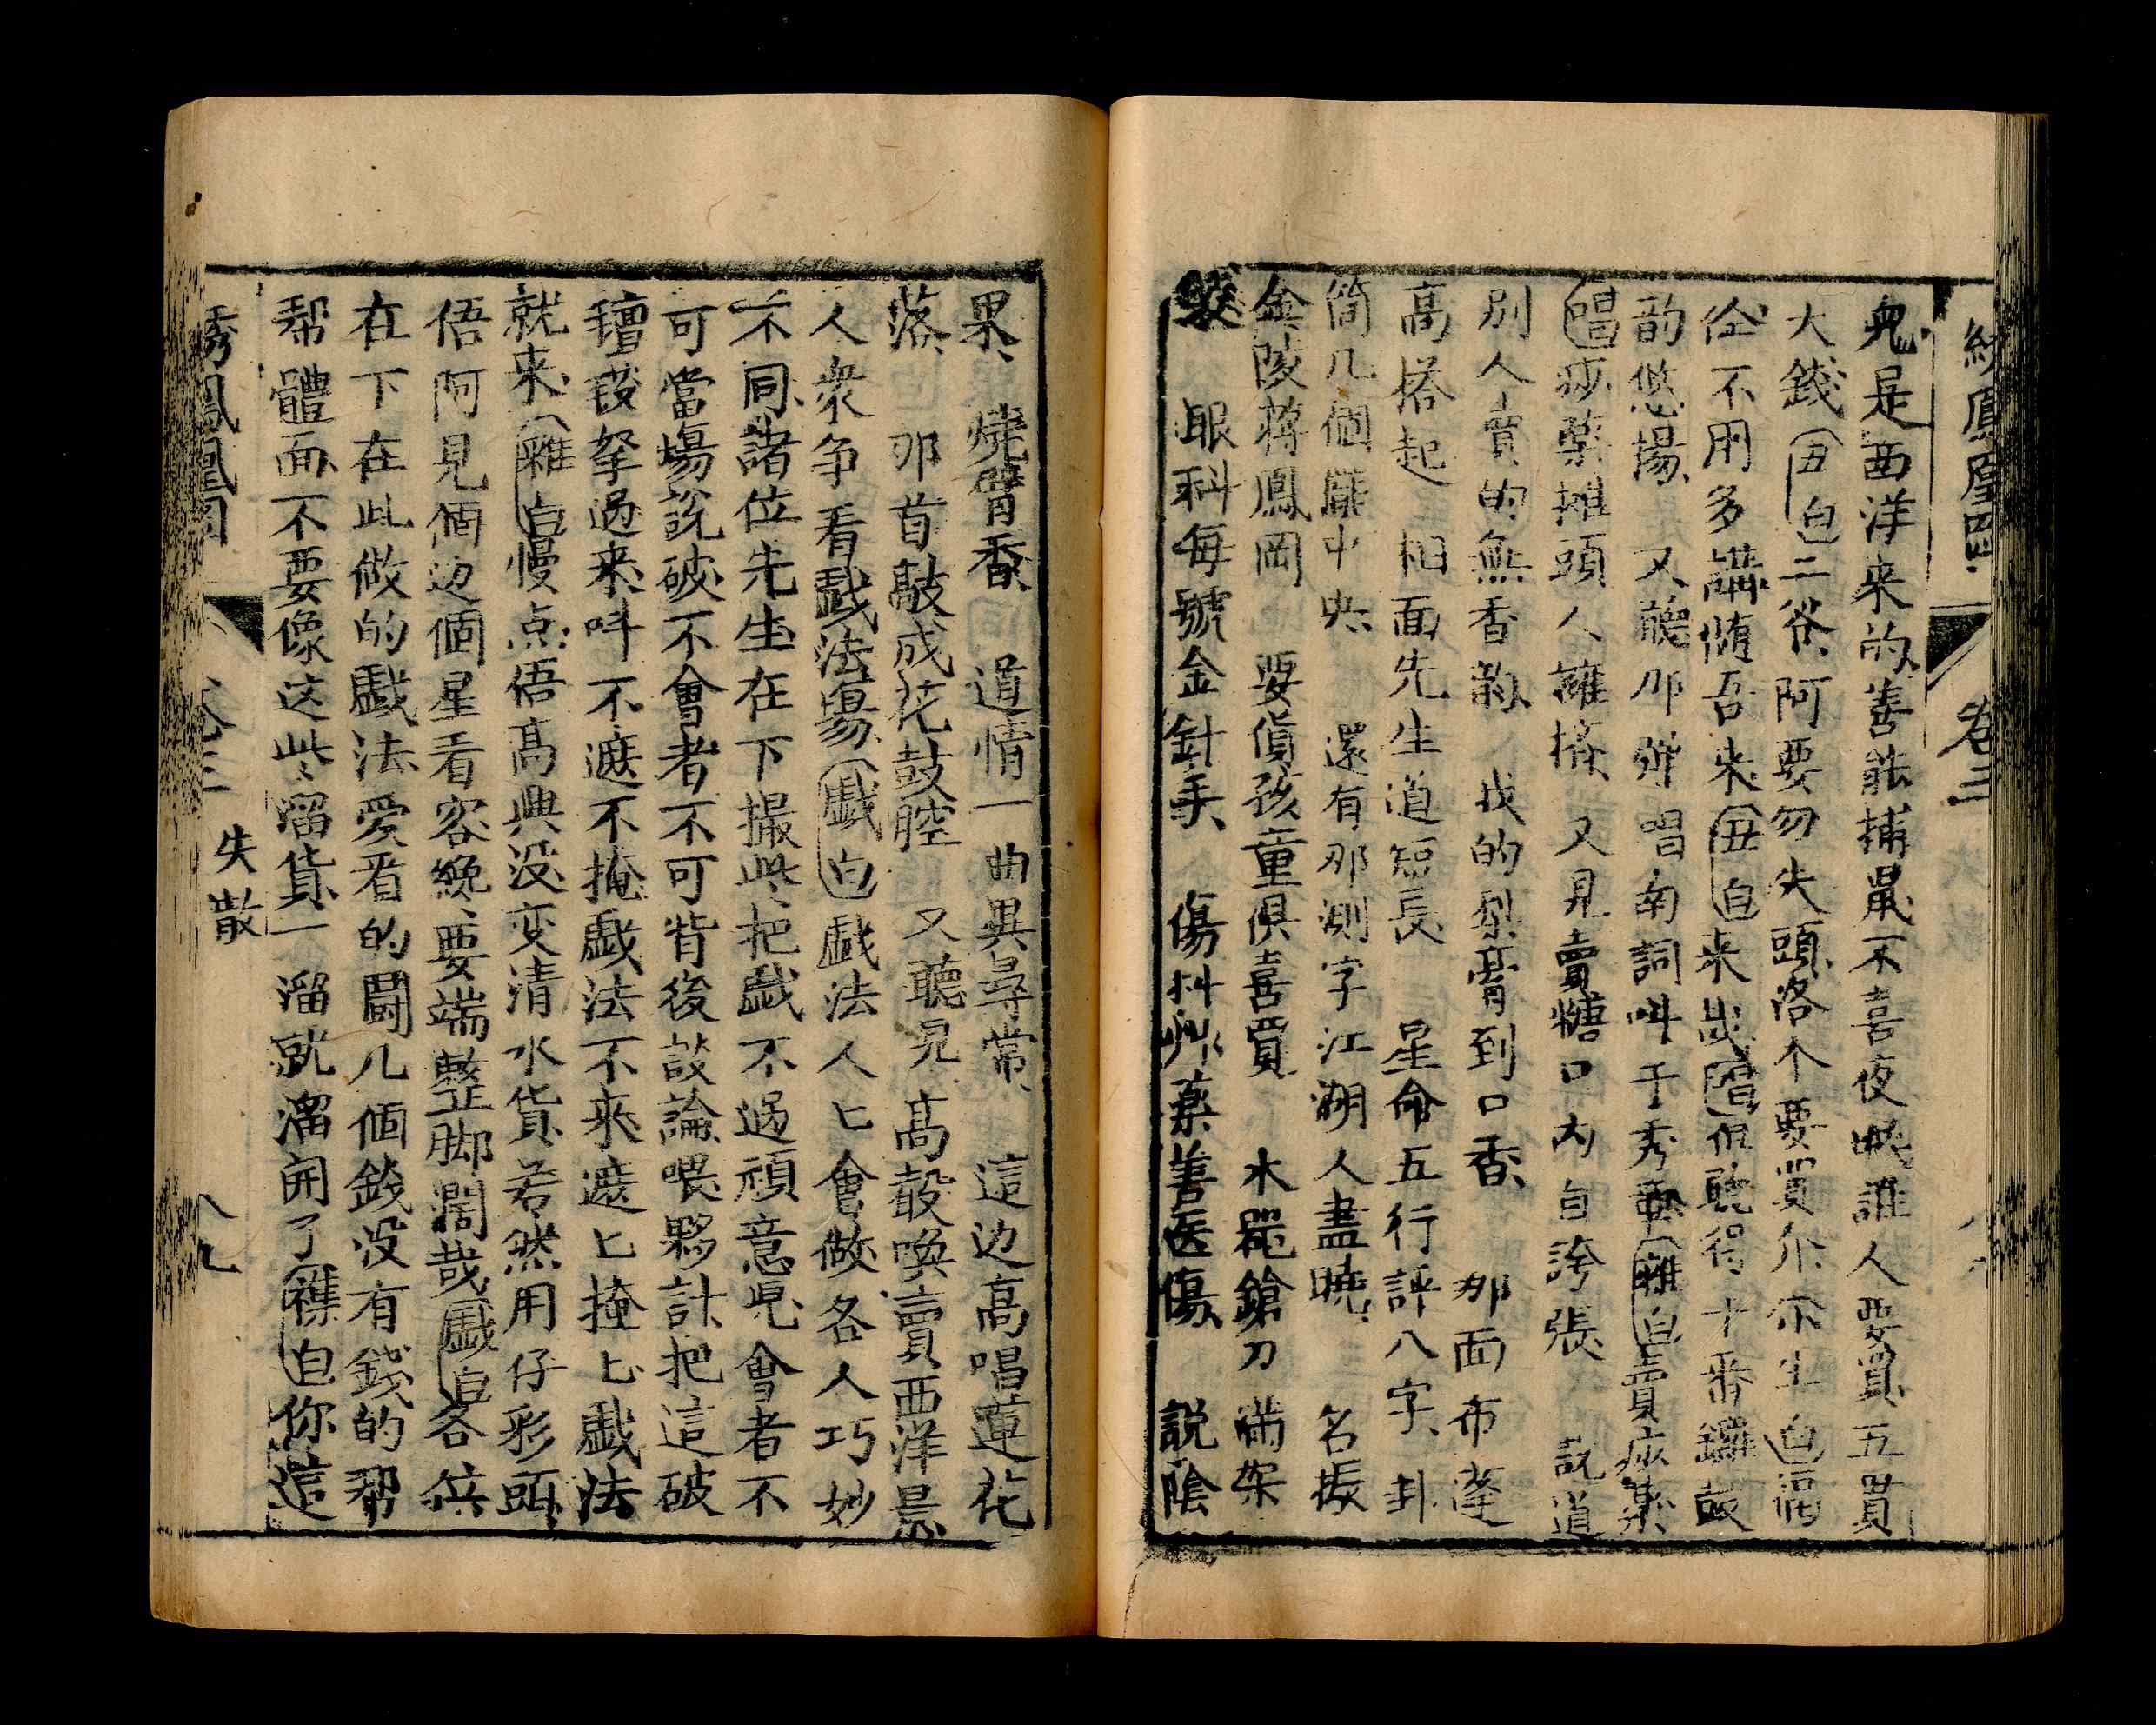 繡鳳凰四 卷三
兔是西洋来的善能捕鼠不喜夜眠誰人要買五貫
大錢(丑白)二爺阿要勿失頭洛不要買尒尒生(白)
仝不用多講随吾来(丑白)来哉(唱)但聽得十番鑼鼓
韵悠揚 又聽那弹唱南詞叫于秀垂(雜白)賣疲薬
(唱)疲薬摊頭人擁擠 又見賣糖口內自誇張 説道
別人賣的無香韵 我的梨膏到口香 那面布蓬
高搭起 相面先生道短長 星命五行評八字 卦
筒几個擺中央 還有那測字江湖人盡曉 名振
金陵蒋鳳岡 耍貨孩童俱喜買 木器鎗刀滿架
裝 眼科每號金針手 傷科草薬善医傷 説陰
果 燒臂香 道情一曲異尋常 這边高唱蓮花
落 那首敲成花鼓腔 又聽見 高聲喚賣西洋景
人衆争看戲法塲(戲白)戲法人匕會做各人巧妙
不同諸位先生在下撮些把戲不過頑意児會者不
可當塲說破不會者不可背後談論喂夥計把這破
氊毯拏過来呌不遮不掩戲法不来遮匕掩匕戲法
就来(雜白)慢点俉高興没变清水貨若然用仔彩頭
俉阿見個边個星看客絻要端整脚濶哉(戲白)各位
在下在此做的戲法愛看的鬪几個錢没有錢的帮
帮體面不要像这些溜貨一溜就溜開了(襍白)你這
綉鳳凰四 卷三 失散 八九